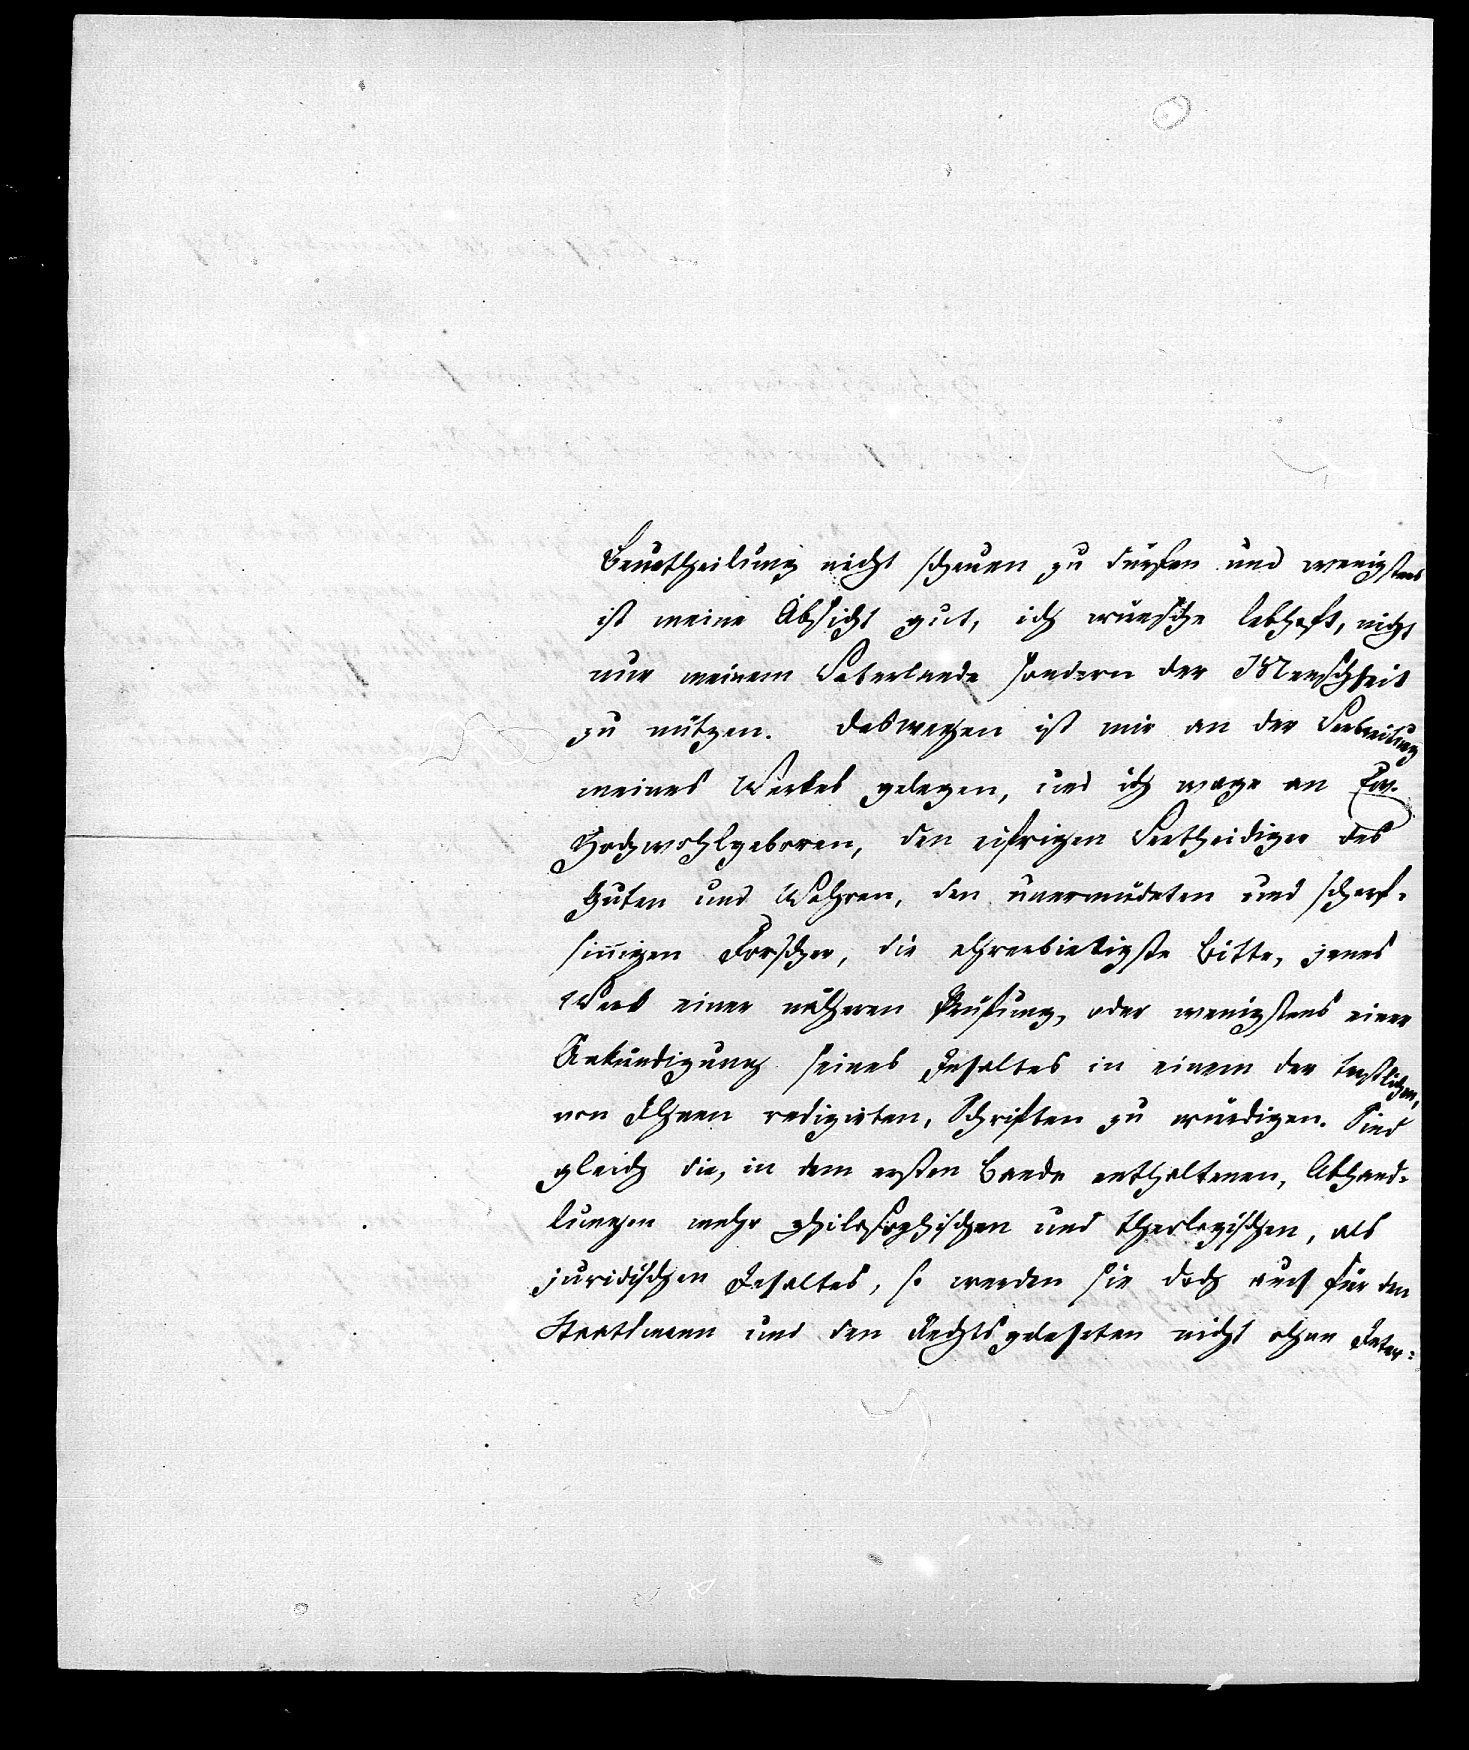 Beurtheilung nicht scheuen zu dürfen und wenigstens
ist meine Absicht gut, ich wünsche lebhaft, nicht
nur meinem Vaterlande sondern der Menschheit
zu nützen. Deswegen ist mir an der Verbreitung
meines Werkes gelegen, und ich wage an Ew.
Hochwohlgeboren, den eifrigen Vertheidiger des
Guten und Wahren, den unermüdeten und scharf-
sinnigen Forscher, die ehrerbietigste Bitte, jenes
Werk einer näheren Prüfung, oder wenigstens einer
Ankündigung seines Inhaltes in einem der trefflichen,
von Ihnen redigirten, Schriften zu würdigen. Sind
gleich die, in dem ersten Bande enthaltenen, Abhand-
lungen mehr philosophischen und theologischen, als
juridischen Inhaltes, so werden sie doch auch für den
Staatsmann und den Rechtsgelehrten nicht ohne Inter-